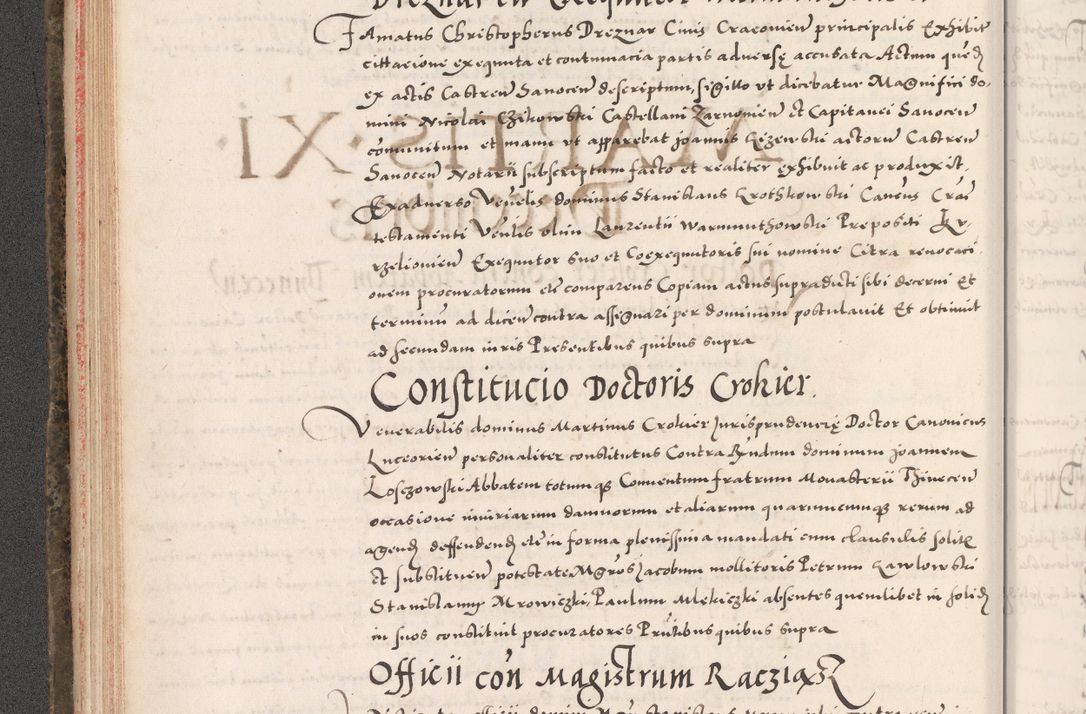 Famatus Christopherus Dreznar Civis Cracovien principalis Exhibit
cittacione exequuta et contumacia partis adversę accusata Actum quedȝ
ex actis Castren Sanocen descriptum, sigillo ut dicebatur Magnifici do-
mini Nicolai Czikowski Castellani Zarnovien Et Capitanei Sanocen
communitum et manu ut apparebat Joannis actorum Castren
Sanocen Notarii subscriptum facto et realiter exhibuit ac produxit.
Exadverso Venelis dominus Stanislaus Krothkowski Canenus
testamenti Venlis olim Laurentii Warmuthowski Prepositi Kr-
rzelionien Exequutor suo et Coexequutoris sui nomine Citra revocaci
onem procuratorum etc comparens Copiam actus supradicti sibi decerni Et
terminum ad dicen contra assignari per dominum postulavit Et obtinuit
ad secundam iuris Presentibus quibus supra
Constitucio Doctoris Crokier.
Venerabilis dominus Martinus Crokier Jurisprudencię Doctor Canonicus
Luceorien personaliter constitutus Contra Rndum dominum Joannem
Losczowski Abbatem totumqȝ Conventum fratrum Monasterii Thinecen
occasione iniuriarum damnorum et aliarum quarumcumqȝ rerum ad
agendȝ deffendendȝ etc in forma plenissima mandati cum clausulis solitȝ
Et substituen potestate Mgros Jacobum mollitoris Petrum Kawlowski
Stanislaum Mrowiczki, Paulum Mlekiczki absentes quemlibet in solidȝ
in suos constituit procuratores Prutibus quibus supra
Officii con Magistrum Racziąsz